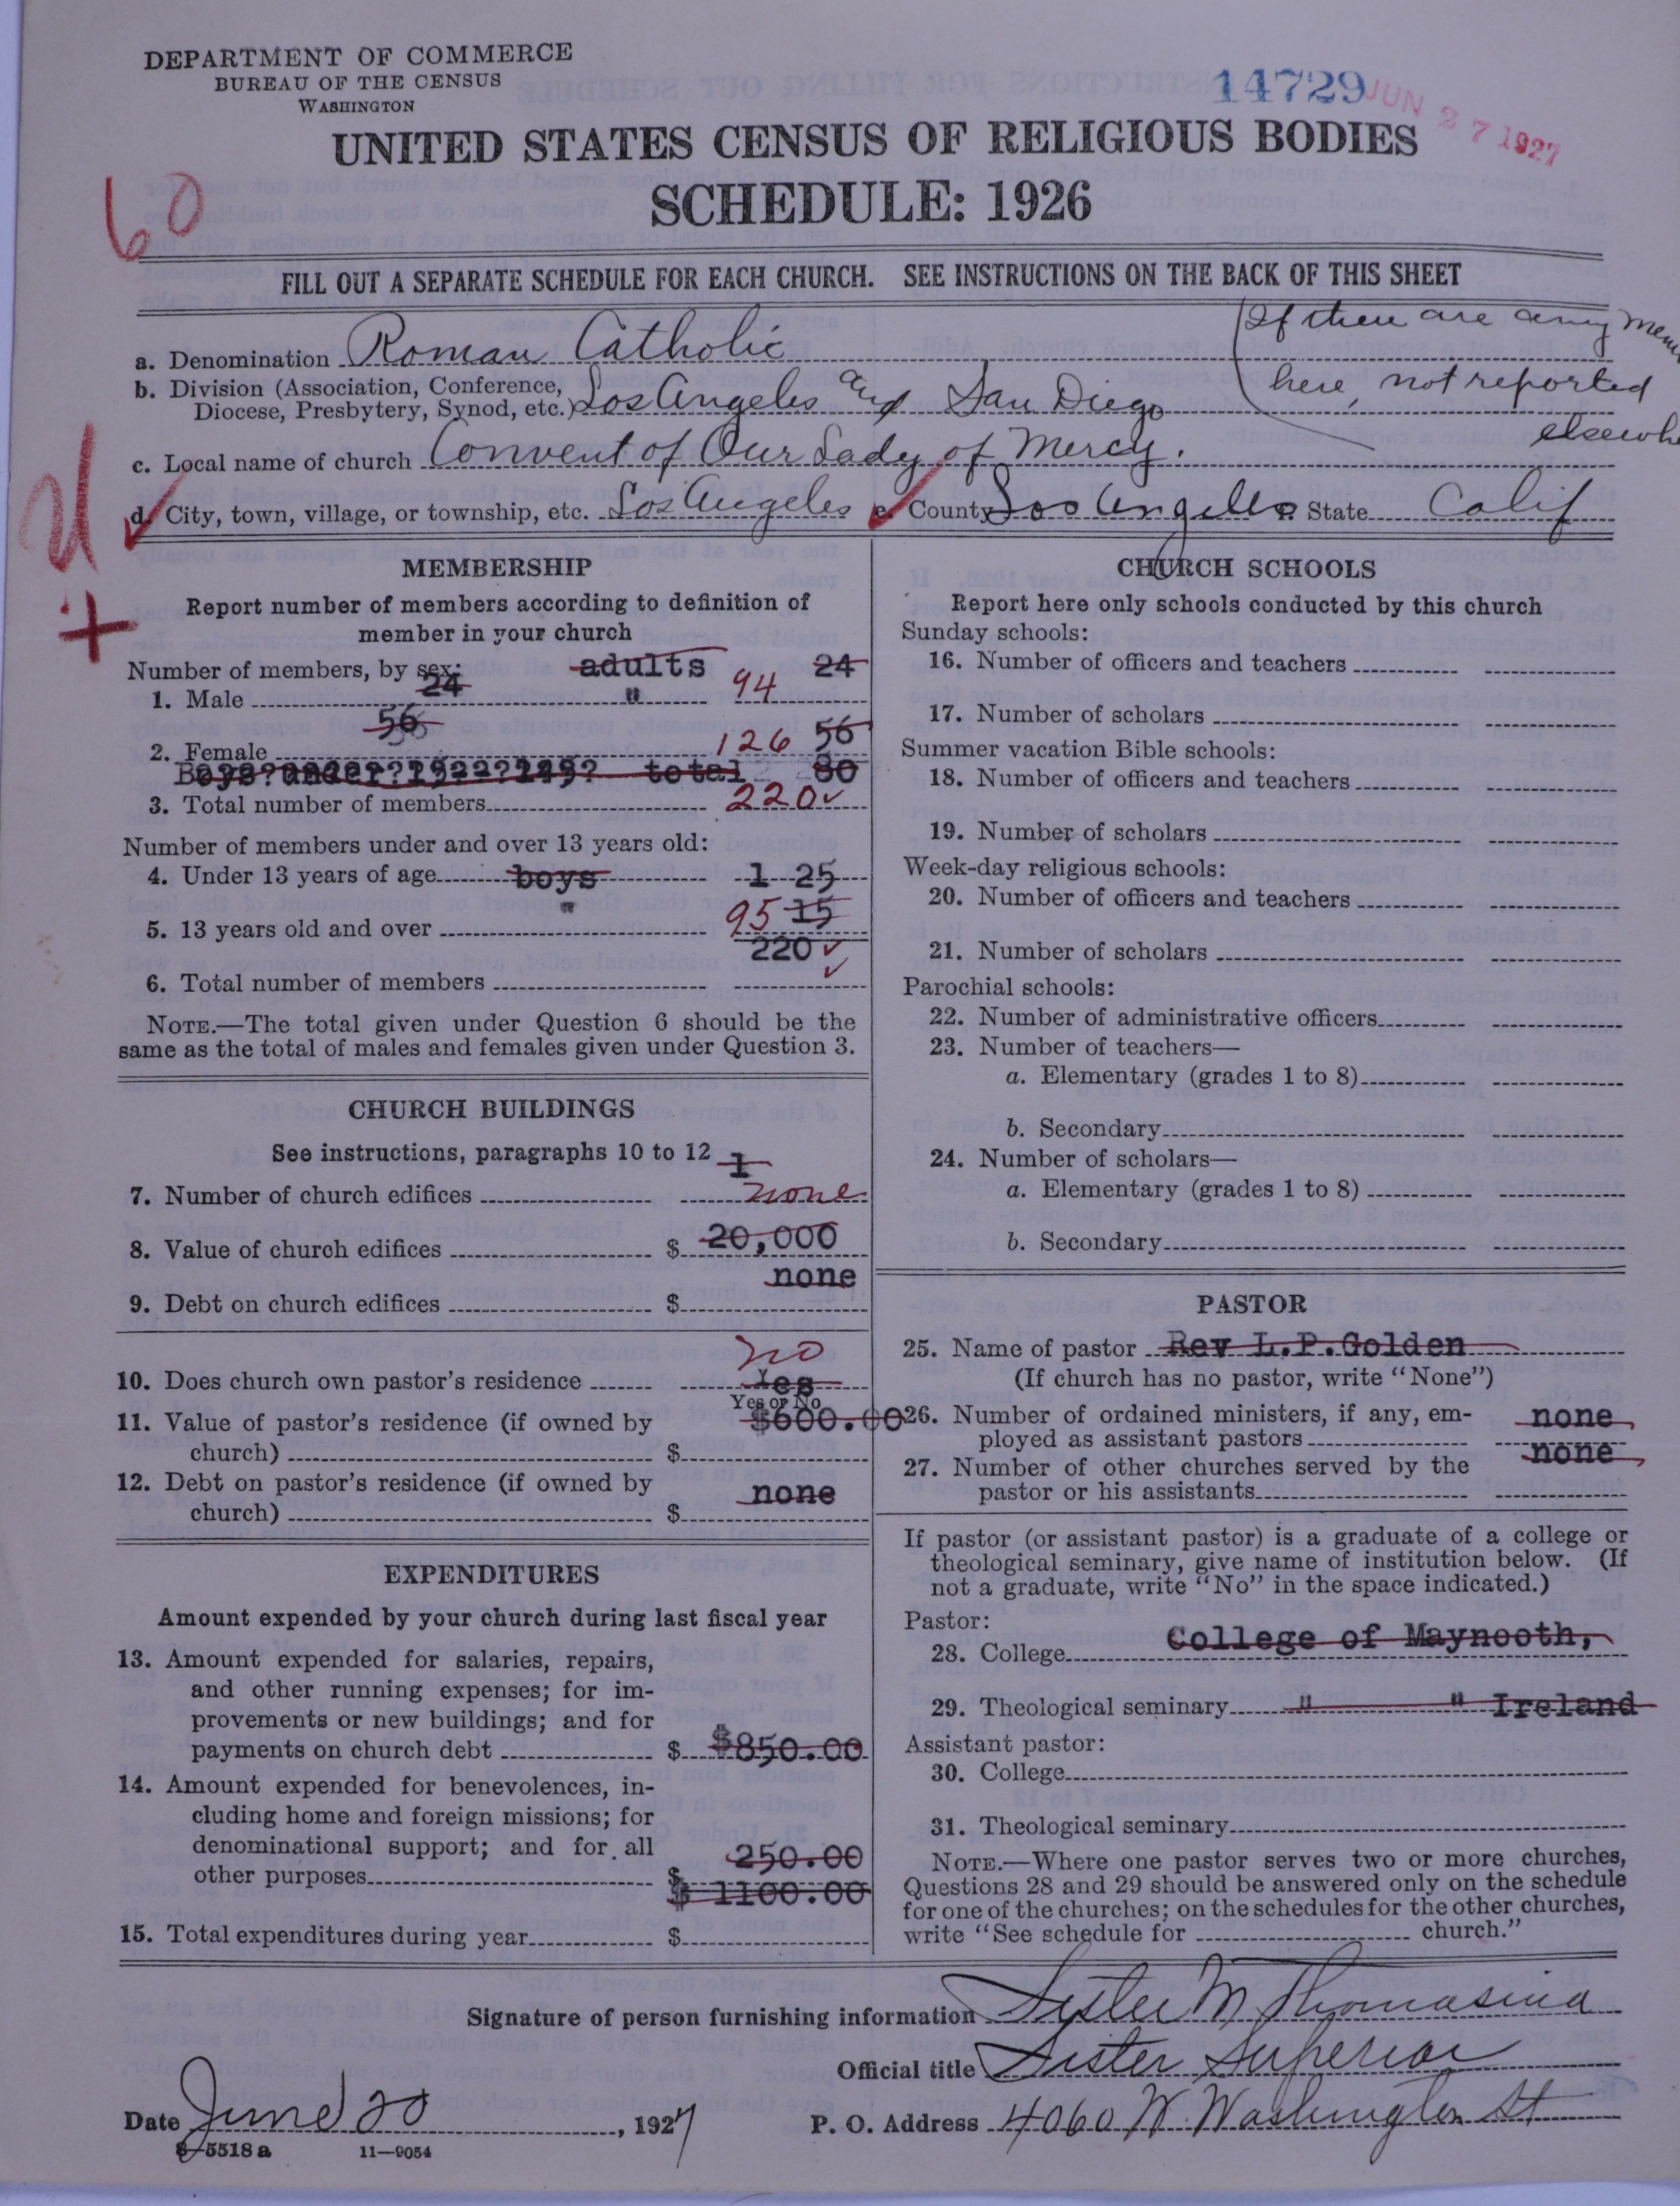 DEPARTMENT OF COMMERCE
BUREAU OF THE CENSUS
WASHINGTON
14729
JUN 27 1927
UNITED STATES CENSUS OF RELIGIOUS BODIES
60
SCHEDULE: 1926
FILL OUT A SEPARATE SCHEDULE FOR EACH CHURCH. SEE INSTRUCTIONS ON THE BACK OF THIS SHEET
If there are any mem
here, not reported
elsewhe
a. Denomination Roman Catholic
b. Division (Association, Conference, Diocese, Presbytery, Synod, etc.) Los Angeles and San Diego
c. Local name of church Convent of Our Lady of Mercy.
d. City, town, village, or township, etc. Los Angeles e. County Los Angeles f. State Calif
MEMBERSHIP
Report number of members according to definition of
member in your church
Number of members, by sex: adults 24
24
1. Male " 94
56
2. Female 126 56
Boys?under?19??149? total 80
3. Total number of members 220 ✓
Number of members under and over 13 years old:
4. Under 13 years of age boys 1 25
"
5. 13 years old and over 95 15
220 ✓
6. Total number of members ✓
NOTE.—The total given under Question 6 should be the
same as the total of males and females given under Question 3.
CHURCH BUILDINGS
See instructions, paragraphs 10 to 12
1
7. Number of church edifices none
8. Value of church edifices $ 20,000
none
9. Debt on church edifices $
no
10. Does church own pastor's residence Yes
Yes or No
11. Value of pastor's residence (if owned by $600.00
church) $
12. Debt on pastor's residence (if owned by none
church) $
EXPENDITURES
Amount expended by your church during last fiscal year
13. Amount expended for salaries, repairs,
and other running expenses; for im-
provements or new buildings; and for
payments on church debt $ $850.00
14. Amount expended for benevolences, in-
cluding home and foreign missions; for
denominational support; and for all
other purposes $ 250.00
$ 1100.00
15. Total expenditures during year $
CHURCH SCHOOLS
Report here only schools conducted by this church
Sunday schools:
16. Number of officers and teachers
17. Number of scholars
Summer vacation Bible schools:
18. Number of officers and teachers
19. Number of scholars
Week-day religious schools:
20. Number of officers and teachers
21. Number of scholars
Parochial schools:
22. Number of administrative officers
23. Number of teachers—
a. Elementary (grades 1 to 8)
b. Secondary
24. Number of scholars—
a. Elementary (grades 1 to 8)
b. Secondary
PASTOR
25. Name of pastor Rev L.P.Golden
(If church has no pastor, write "None")
26. Number of ordained ministers, if any, em- none
ployed as assistant pastors
none
27. Number of other churches served by the
pastor or his assistants
If pastor (or assistant pastor) is a graduate of a college or
theological seminary, give name of institution below. (If
not a graduate, write "No" in the space indicated.)
Pastor:
28. College College of Maynooth,
29. Theological seminary " " Ireland
Assistant pastor:
30. College
31. Theological seminary
NOTE.—Where one pastor serves two or more churches,
Questions 28 and 29 should be answered only on the schedule
for one of the churches; on the schedules for the other churches,
write "See schedule for church."
Signature of person furnishing information Sister M Thomasina
Official title Sister Superior
Date June 20, 1927 P. O. Address 4060 W. Washington St
8—5518 a 11—9054